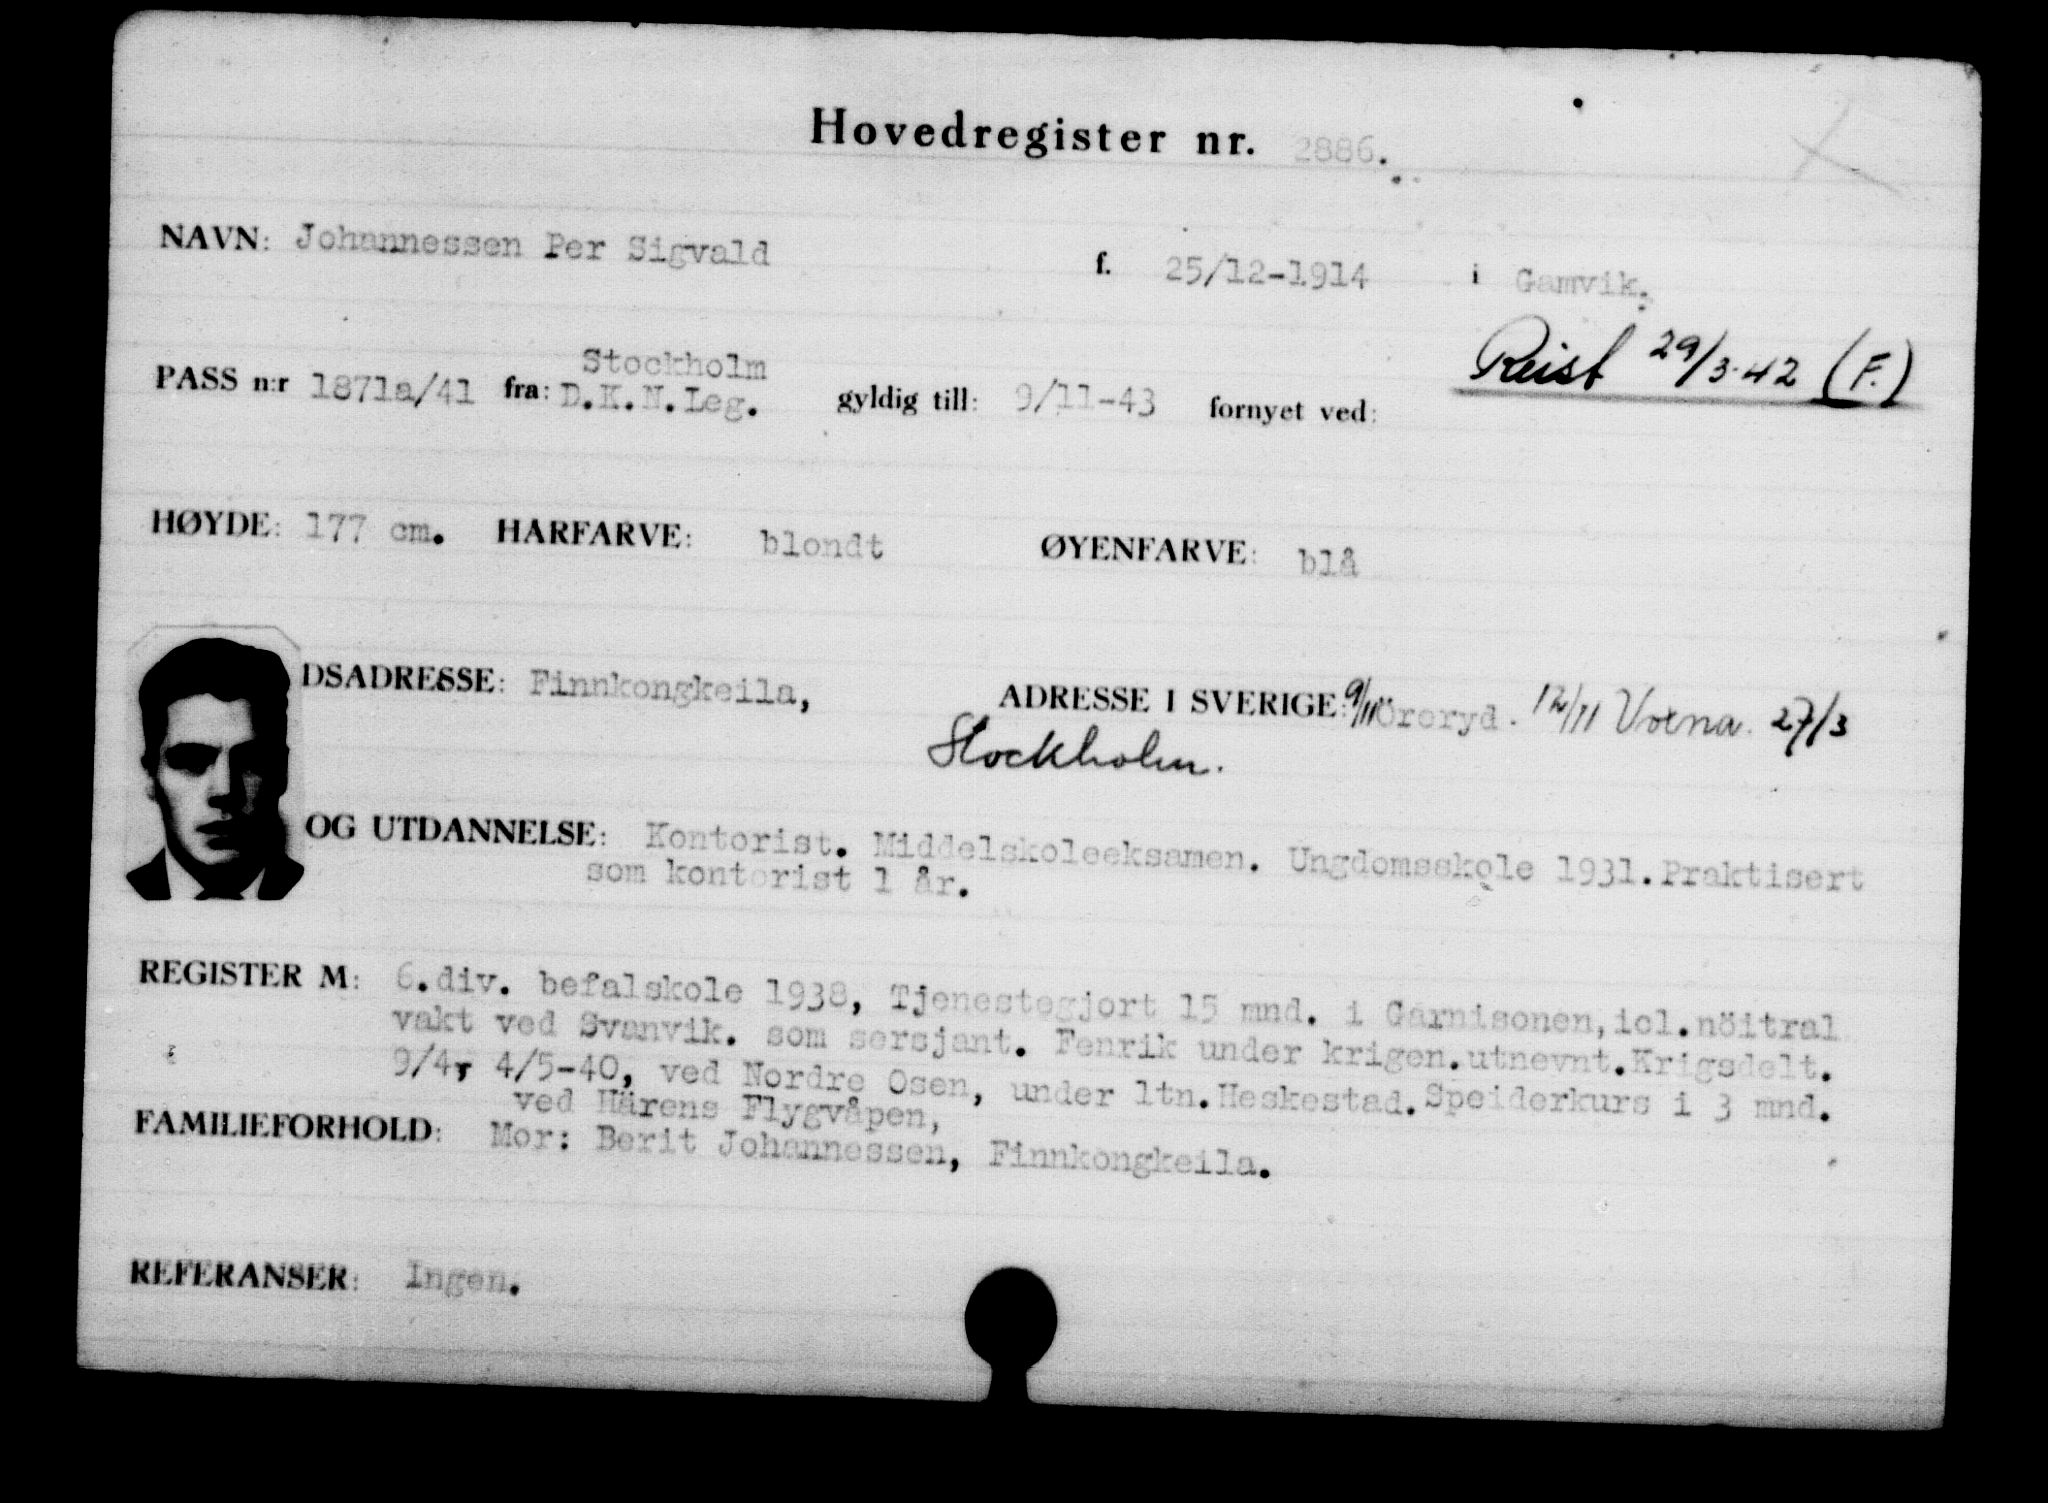 Hovedregister nr. 2886.
NAVN: Johannessen Per Sigvald f. 25/12-1914 i Gamvik.
Reist 29/3-42 (F.)
Stockholm
PASS n:r 1871a/41 fra: D.K.N.Leg. gyldig till: 9/11-43 fornyet ved:
HØYDE: 177 cm. HARFARVE: blondt ØYENFARVE: blå
DSADRESSE: Finnkongkeila, ADRESSE I SVERIGE: 9/11 Öreryd. 12/11 Voxna. 27/3
Stockholm.
OG UTDANNELSE: Kontorist. Middelskoleeksamen. Ungdomsskole 1931. Praktisert
som kontorist 1 år.
REGISTER M: 6.div. befalskole 1938, Tjenestegjort 15 mnd. i Garnisonen, icl. nöitral
vakt ved Svanvik. som sersjant. Fenrik under krigen. utnevnt. Krigsdelt.
9/4, 4/5-40, ved Nordre Osen, under ltn. Heskestad. Speiderkurs i 3 mnd.
ved Härens Flygvåpen,
FAMILIEFORHOLD: Mor: Berit Johannessen, Finnkongkeila.
REFERANSER: Ingen.